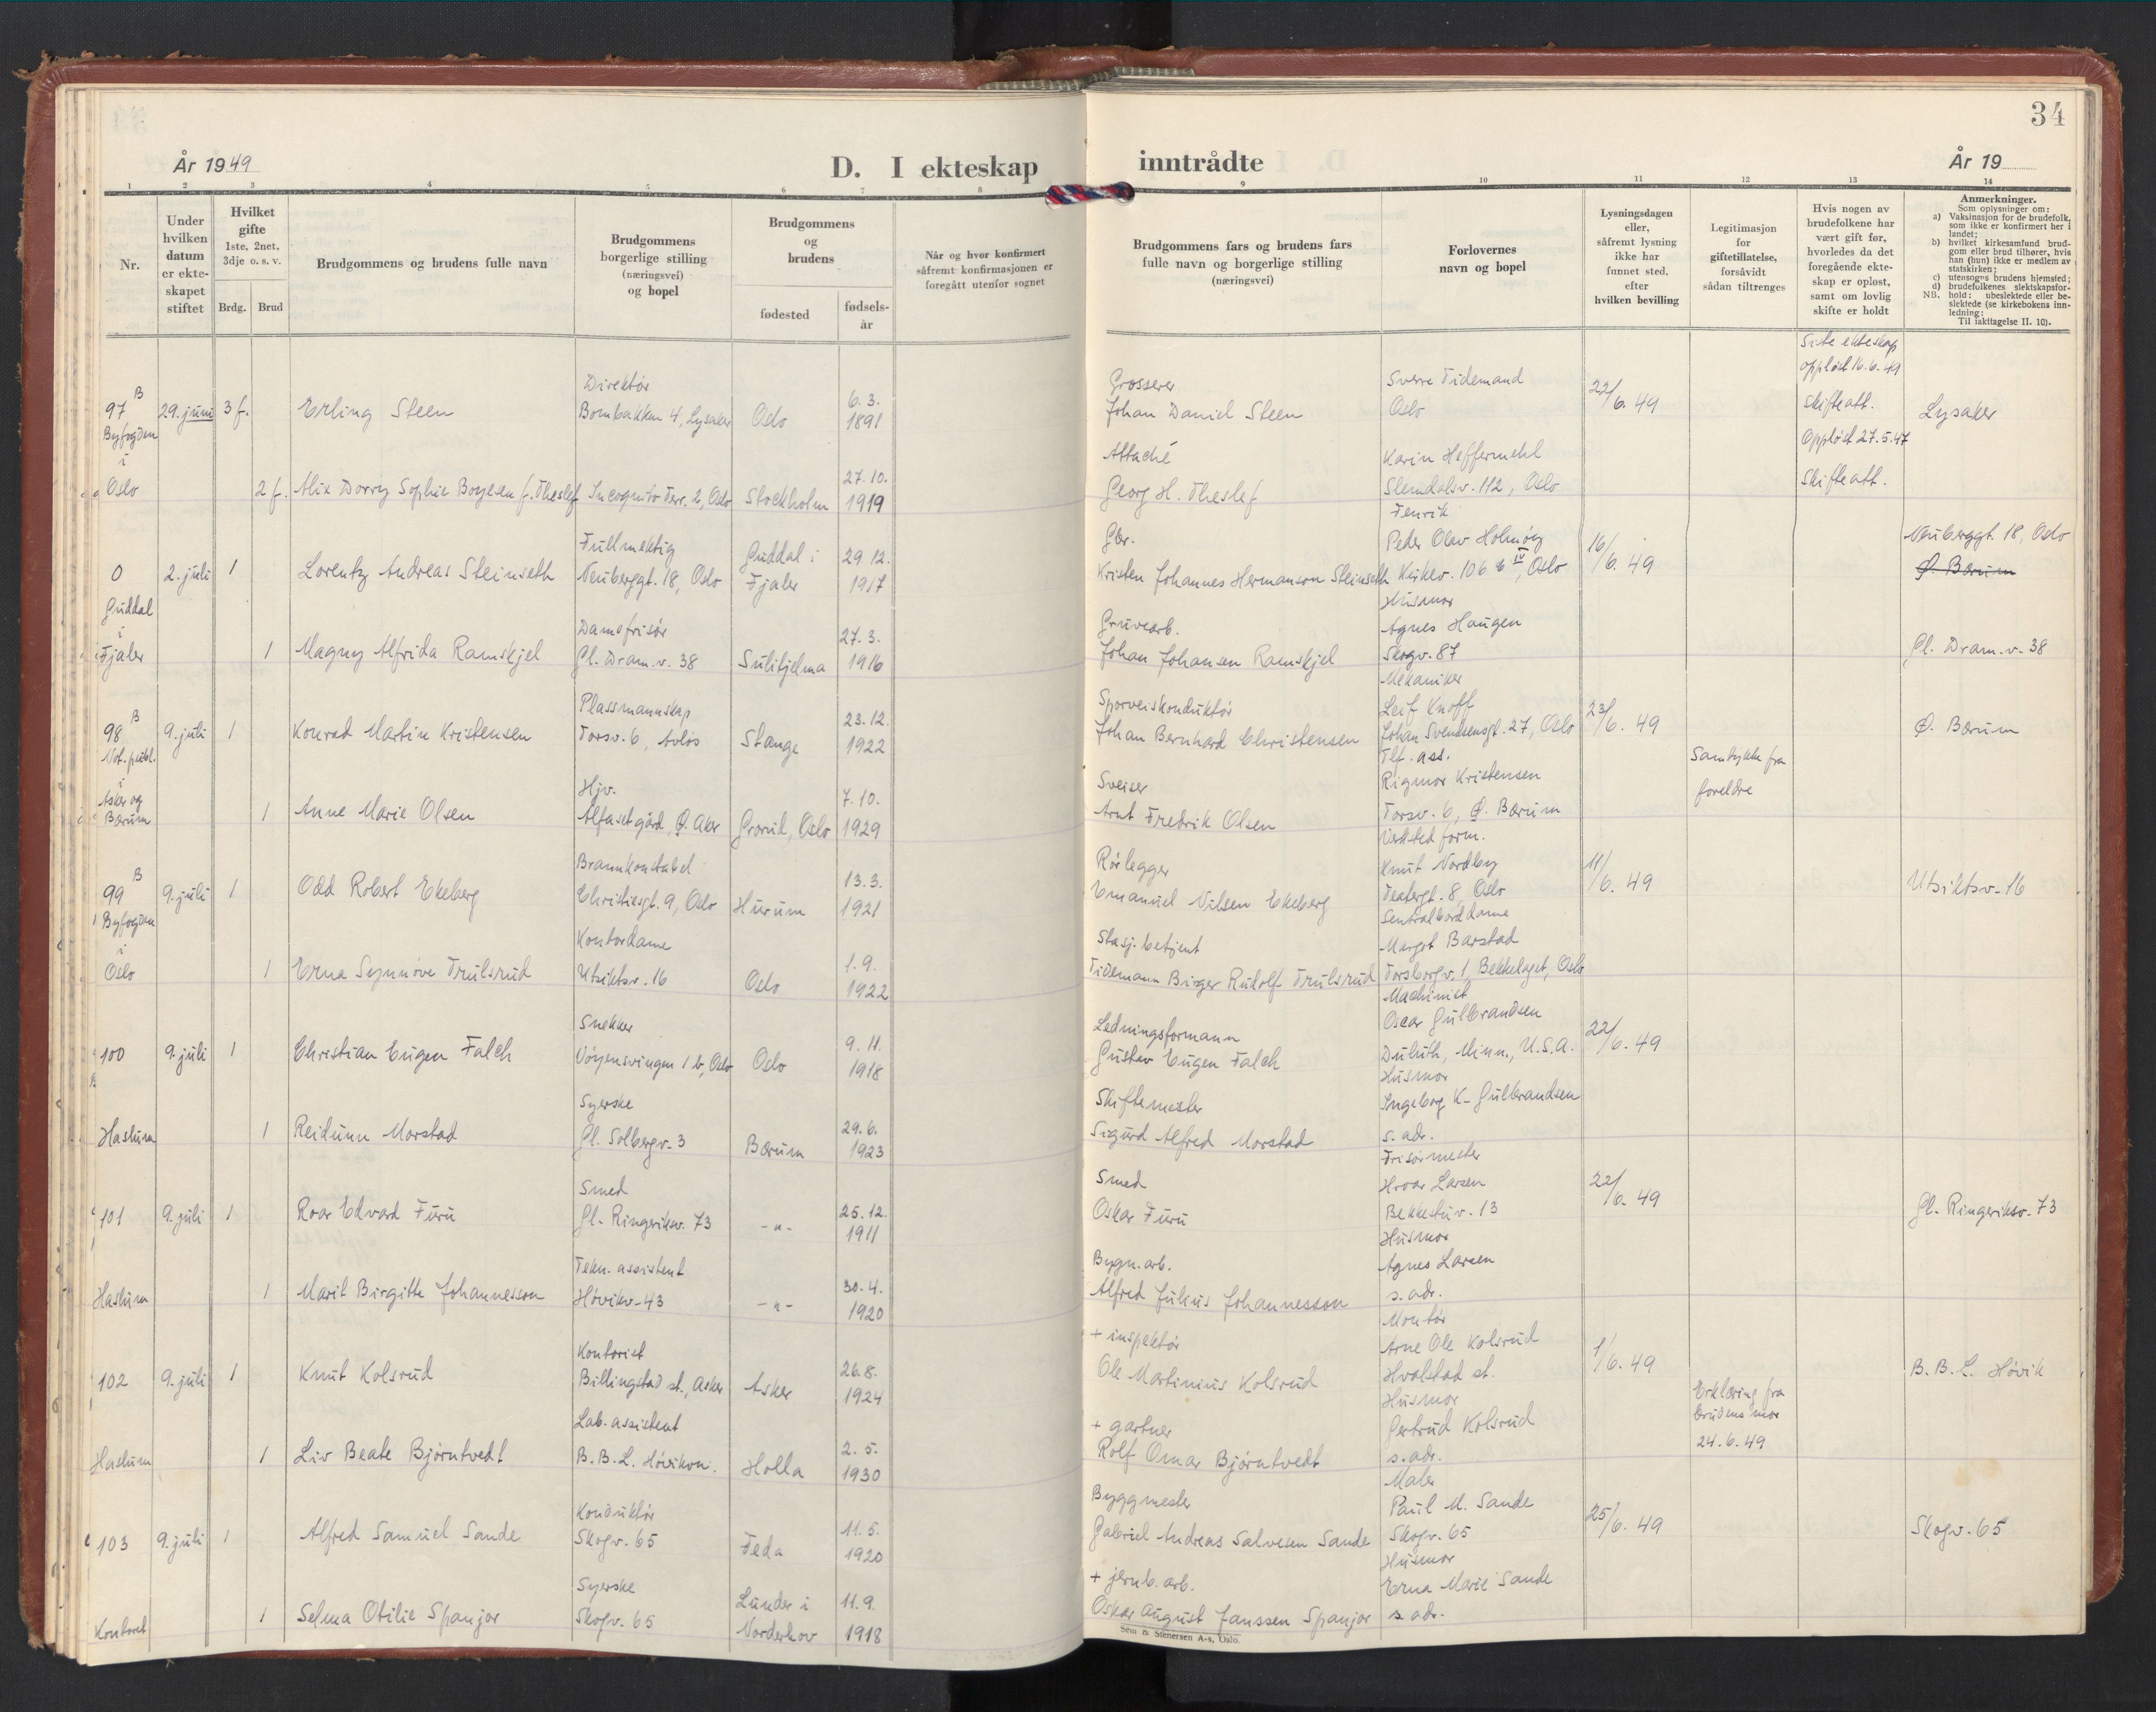 34
År 1949
D. I ekteskap inntrådte
År 19
1 2 3 4 5 6 7 8 9 10 11 12 13 14
Nr.
Under hvilken datum er ekte-skapet stiftet
Hvilket gifte 1ste, 2net, 3dje o. s. v.
Brdg. Brud
Brudgommens og brudens fulle navn
Brudgommens borgerlige stilling (næringsvei) og bopel
Brudgommens og brudens
fødested
fødsels-år
Når og hvor konfirmert såfremt konfirmasjonen er foregått utenfor sognet
Brudgommens fars og brudens fars fulle navn og borgerlige stilling (næringsvei)
Forlovernes navn og bopel
Lysningsdagen eller, såfremt lysning ikke har funnet sted, efter hvilken bevilling
Legitimasjon for giftetillatelse, forsåvidt sådan tiltrenges
Hvis nogen av brudefolkene har vært gift før, hvorledes da det foregående ekte-skap er opløst, samt om lovlig skifte er holdt
Anmerkninger.
Som oplysninger om:
a) Vaksinasjon for de brudefolk, som ikke er konfirmert her i landet;
b) hvilket kirkesamfund brud-gom eller brud tilhører, hvis han (hun) ikke er medlem av statskirken;
c) utensogns brudens hjemsted;
d) brudefolkenes slektskapsfor-hold: ubeslektede eller be-slektede (se kirkebokens inn-ledning:
NB. Til iakttagelse II. 10).
97 B Byfogden i Oslo
29. juni 3 f. Erling Steen
Direktør Bombakken 4, Lysaker Oslo 6.3. 1891
Grosserer Johan Daniel Steen
Sverre Tidemand Oslo
22/6. 49
Siste ekteskap oppløst 16.6.49 Skifteatt.
Lysaker
2 f. Alix Dorry Sophie Boyesen f. Theslef
Incognito Terr. 2, Oslo Stockholm 27.10. 1919
Attaché Georg H. Theslef
Karin Heffermehl Slemdalsv. 112, Oslo
Oppløst 27.5.47 Skifteatt.
0 Guddal i Fjaler
2. juli 1 Lorentz Andreas Steinseth
Fullmektig Neuberggt. 18, Oslo Guddal i Fjaler 29 12. 1917
Gbr. Kristen Johannes Hermanson Steinseth
Fenrik Peder Olav Holmøy Kirkev. 106 b IV, Oslo
16/6. 49
Neuberggt. 18, Oslo
Ø. Bærum
1 Magny Alfrida Ramskjel
Damefrisør Gl. Dram.v. 38 Sulitjelma 27.3. 1916
Gruvearb. Johan Johansen Ramskjel
Husmor Agnes Haugen Skogv. 87
Gl. Dram.v. 38
98 B Not. publ. i Asker og Bærum
9. juli 1 Konrad Martin Kristensen
Plassmannskap Torsv. 6, Avløs Stange 23.12. 1922
Sporveiskonduktør Johan Bernhard Christensen
Mekaniker Leif Knoff Johan Svendsensgt. 27, Oslo
23/6. 49
Ø. Bærum
1 Anne Marie Olsen
Hjv. Alfaset gård, Ø. Aker Grorud, Oslo 7.10. 1929
Sveiser Arnt Fredrik Olsen
Tlf. ass. Rigmor Kristensen Torsv. 6, Ø. Bærum
Samtykke fra foreldre
99 B Byfogden i Oslo
9. juli 1 Odd Robert Ekeberg
Brannkonstabel Christiesgt. 9, Oslo Hurum 13.3. 1921
Rørlegger Emanuel Nilsen Ekeberg
Verksted form. Knut Nordby Teatergt. 8, Oslo
11/6. 49
Utsiktsv. 16
1 Erna Synnøve Trulsrud
Kontordame Utsiktsv. 16 Oslo 1.9. 1922
Stasj. betjent Tidemann Birger Rudolf Trulsrud
Sentralborddame Margot Barstad Torsborgv. 1, Bekkelaget, Oslo
100 Haslum
9. juli 1 Christian Eugen Falch
Snekker Vøyensvingen 1 b, Oslo Oslo 9.11. 1918
Ledningsformann Gustav Eugen Falch
Machinist Oscar Gulbrandsen Duluth, Minn., U.S.A.
22/6. 49
1 Reidunn Morstad
Syerske Gl. Solbergv. 3 Bærum 29.6. 1923
Skiftemester Sigurd Alfred Morstad
Husmor Ingeborg K. Gulbrandsen s. adr.
101 Haslum
9. juli 1 Roar Edvard Furu
Smed Gl. Ringeriksv. 73 -"- 25.12. 1911
Smed Oskar Furu
Frisørmester Hroar Larsen Bekkestuv. 13
22/6. 49
Gl. Ringeriksv. 73
1 Marit Birgitte Johannesson
Tekn. assistent Høvikv. 43 -"- 30.4. 1920
Bygn. arb. Alfred Julius Johannesson
Husmor Agnes Larsen s. adr.
102 Haslum
9. juli 1 Knut Kolsrud
Kontorist Billingstad st., Asker Asker 26.8. 1924
+ inspektør Ole Martinius Kolsrud
Montør Arne Ole Kolsrud Hvalstad st.
1/6. 49
B.B.L. Høvik
1 Liv Beate Bjørntvedt
Lab. assistent B.B.L. Høvikvn. Holla 2.5. 1930
+ gartner Rolf Omar Bjørntvedt
Husmor Gertrud Kolsrud s. adr.
Erklæring fra brudens mor 24.6.49
103 Kontoret
9. juli 1 Alfred Samuel Sande
Konduktør Skogv. 65 Feda 11.5. 1920
Byggmester Gabriel Andreas Salvesen Sande
Maler Paul M. Sande Skogv. 65
25/6. 49
Skogv. 65
1 Selma Otilie Spanjor
Syerske Skogv. 65 Lunder i Norderhov 11.9. 1918
+ jernb. arb. Oskar August Janssen Spanjor
Husmor Erna Marie Sande s. adr.
Sem & Stenersen A-s, Oslo.